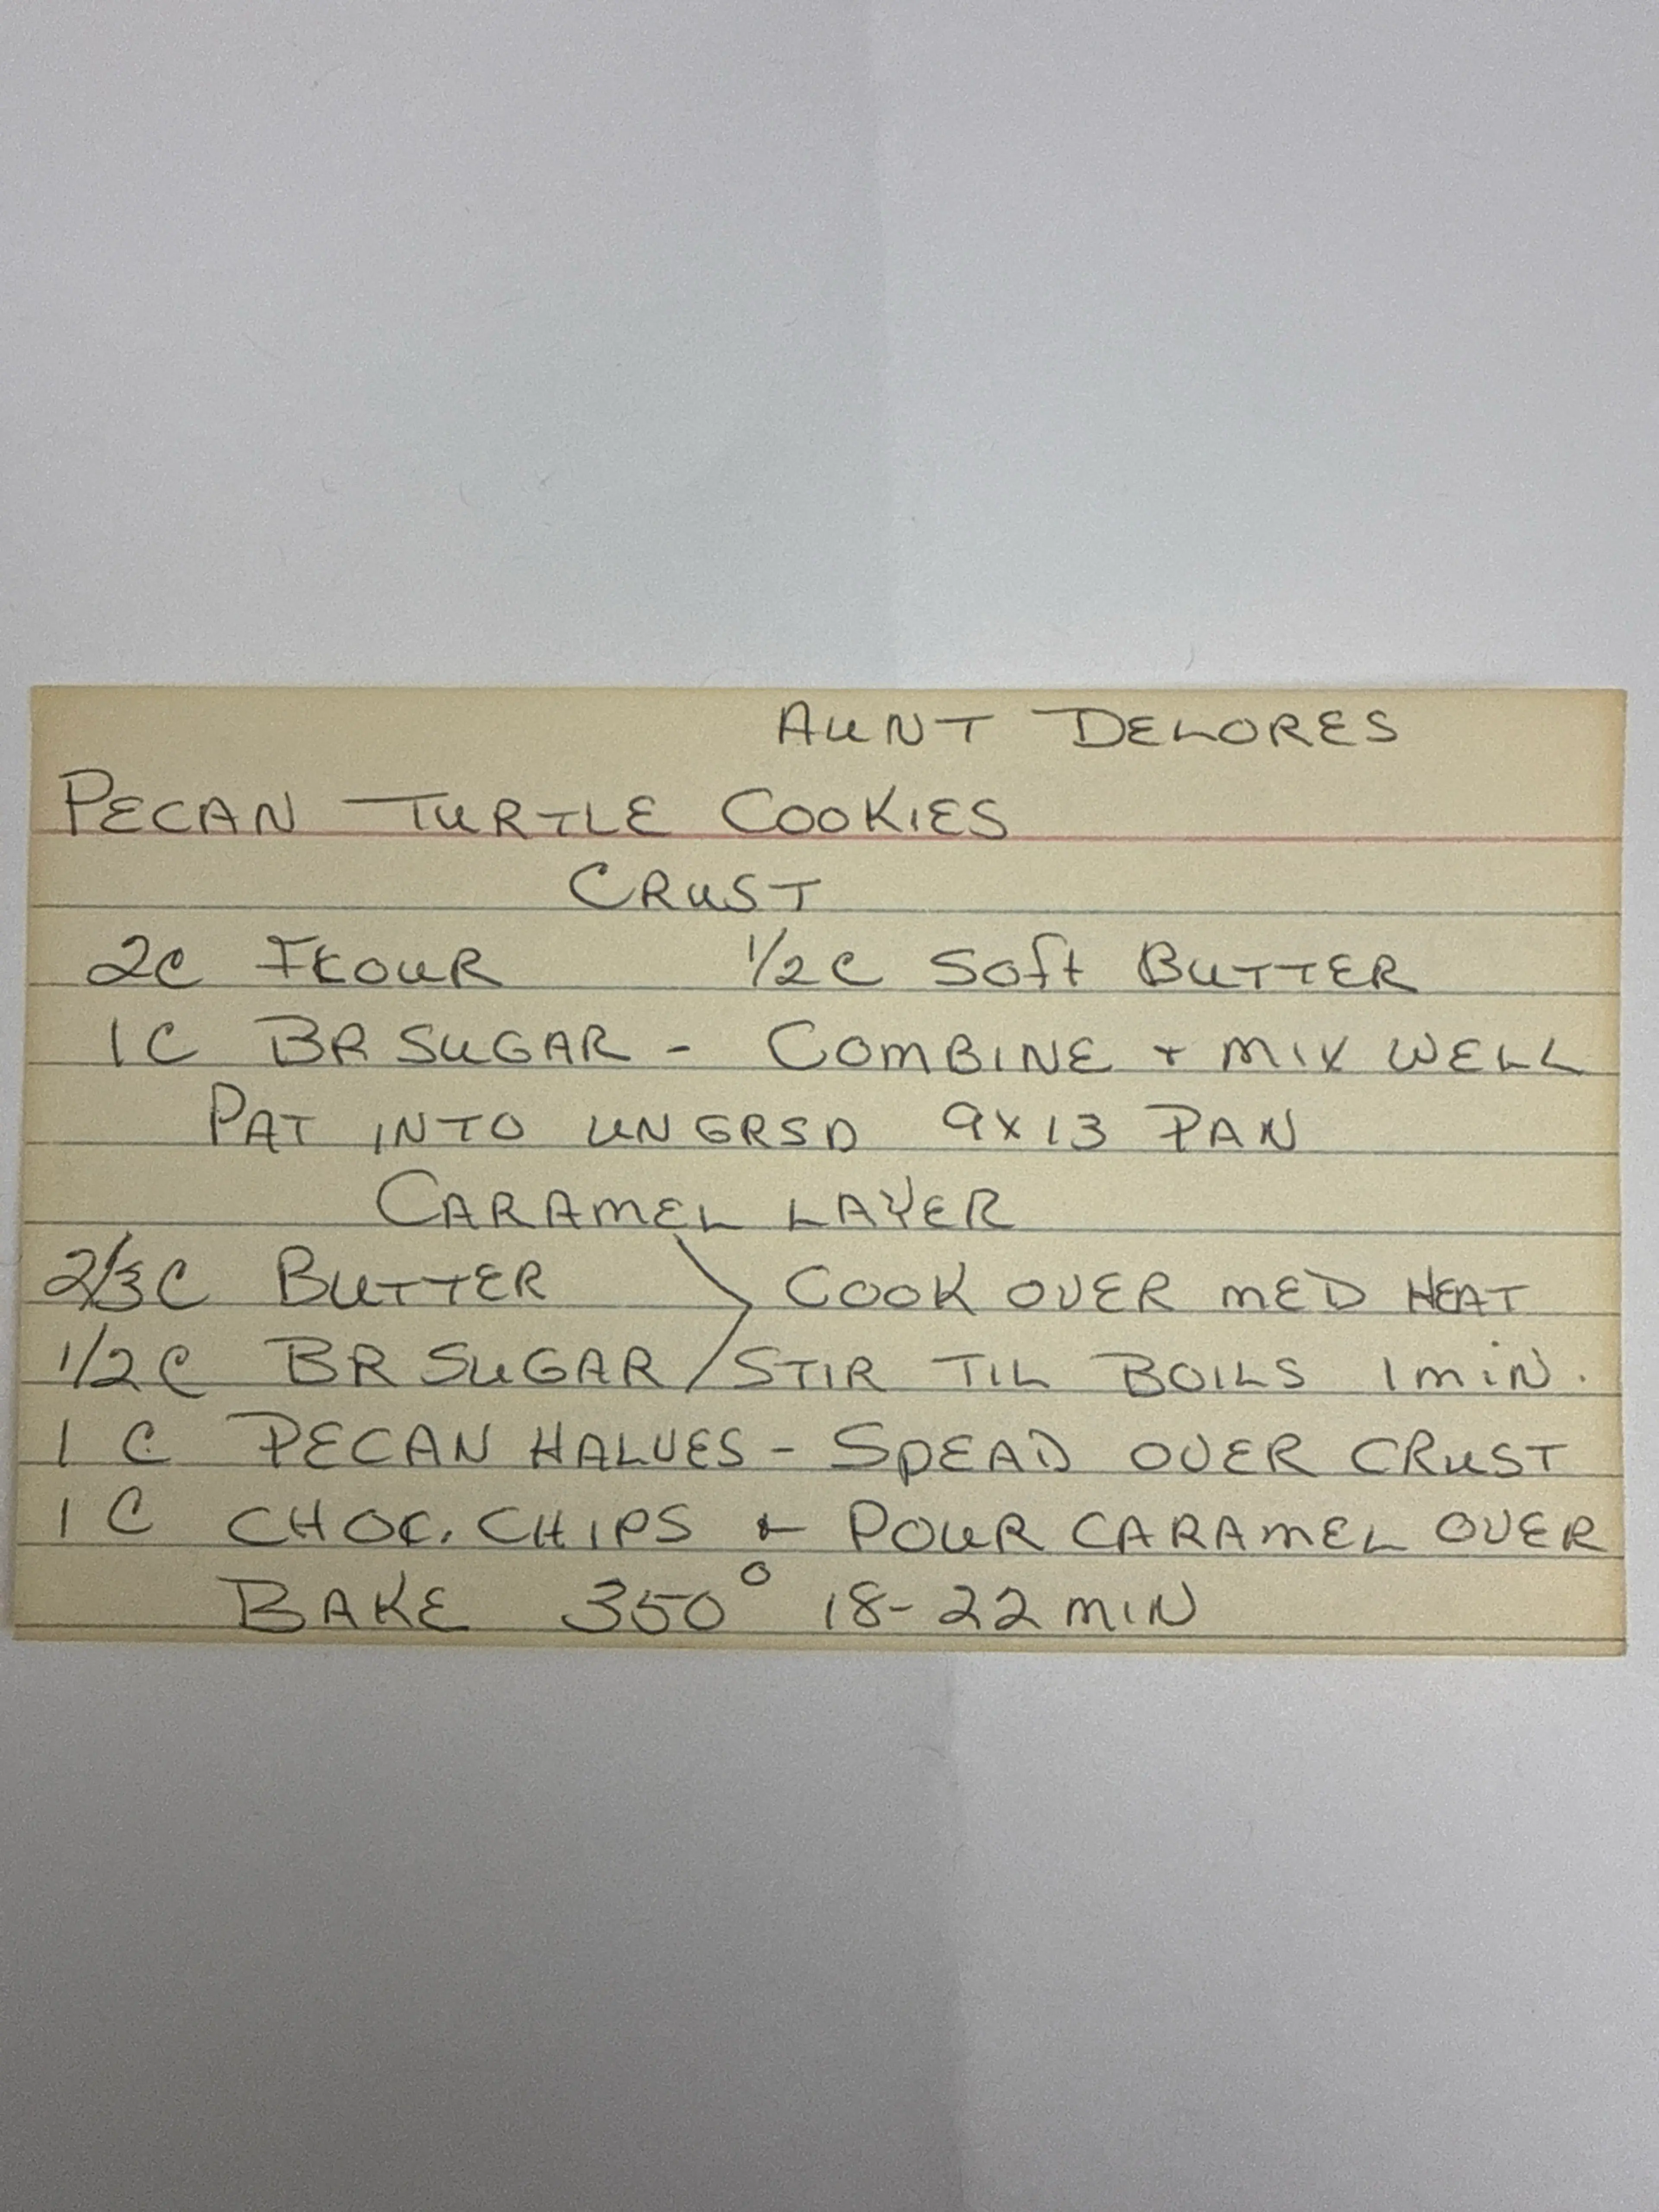 AUNT DELORES
PECAN TURTLE COOKIES
CRUST
2C FLOUR 1/2C SOft BUTTER
1C BR SUGAR - COMBINE + MIX WELL
PAT INTO UNGRSD 9X13 PAN
CARAMEL LAYER
2/3C BUTTER COOK OVER MED HEAT
1/2C BR SUGAR STIR TIL BOILS 1 MIN.
1 C PECAN HALVES - SPEAD OVER CRUST
1 C CHOC. CHIPS + POUR CARAMEL OVER
BAKE 350° 18-22 MIN